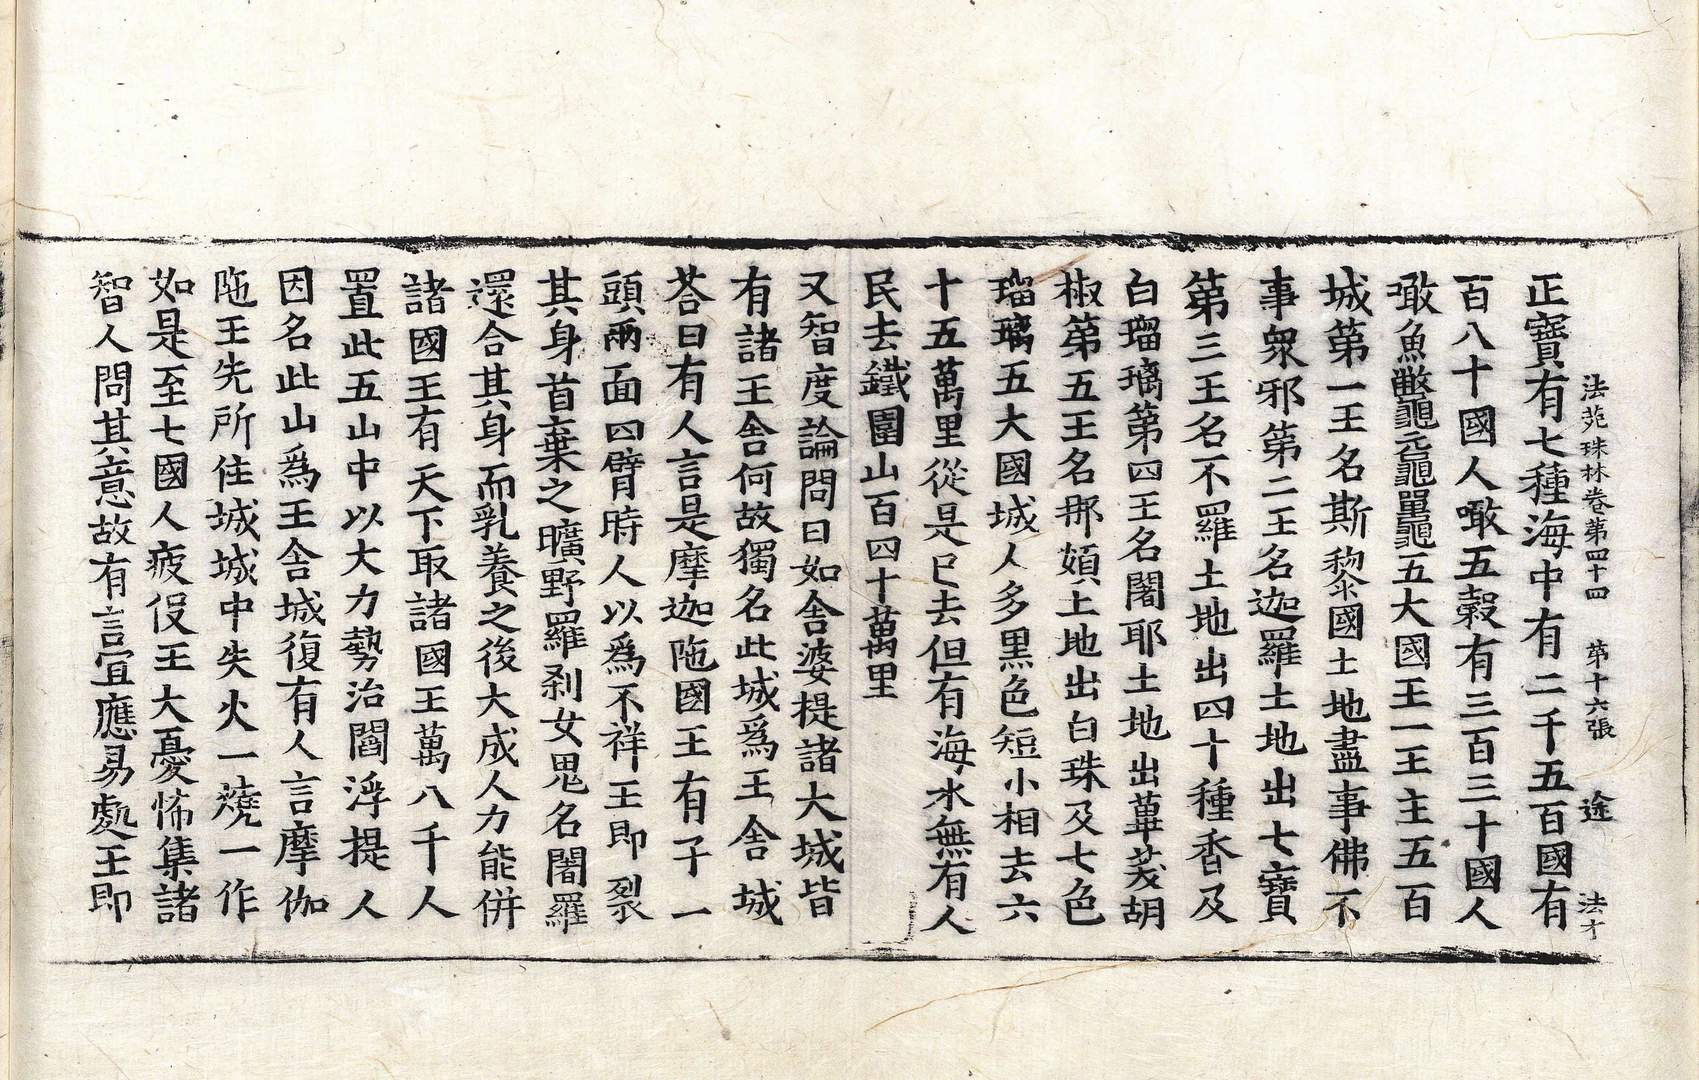 法苑珠林卷第四十四 第十六張 途 法才
正寶有七種海中有二千五百國有
百八十國人噉五穀有三百三十國人
噉魚鼈黿鼉五大國王一王主五百
城第一王名斯黎國土地盡事佛不
事衆邪第二王名迦羅土地出七寶
第三王名不羅土地出四十種香及
白瑠璃第四王名闍耶土地出蓽茇胡
椒第五王名那頞土地出白珠及七色
瑠璃五大國城人多黑色短小相去六
十五萬里從是已去但有海水無有人
民去鐵圍山百四十萬里
又智度論問曰如舍婆提諸大城皆
有諸王舍何故獨名此城爲王舍城
荅曰有人言是摩迦陁國王有子一
頭兩面四臂時人以爲不祥王即裂
其身首棄之曠野羅剎女鬼名闍羅
還合其身而乳養之後大成人力能併
諸國王有天下取諸國王萬八千人
置此五山中以大力勢治閻浮提人
因名此山爲王舍城復有人言摩伽
陁王先所住城城中失火一燒一作
如是至七國人疲役王大憂怖集諸
智人問其意故有言宜應易處王即